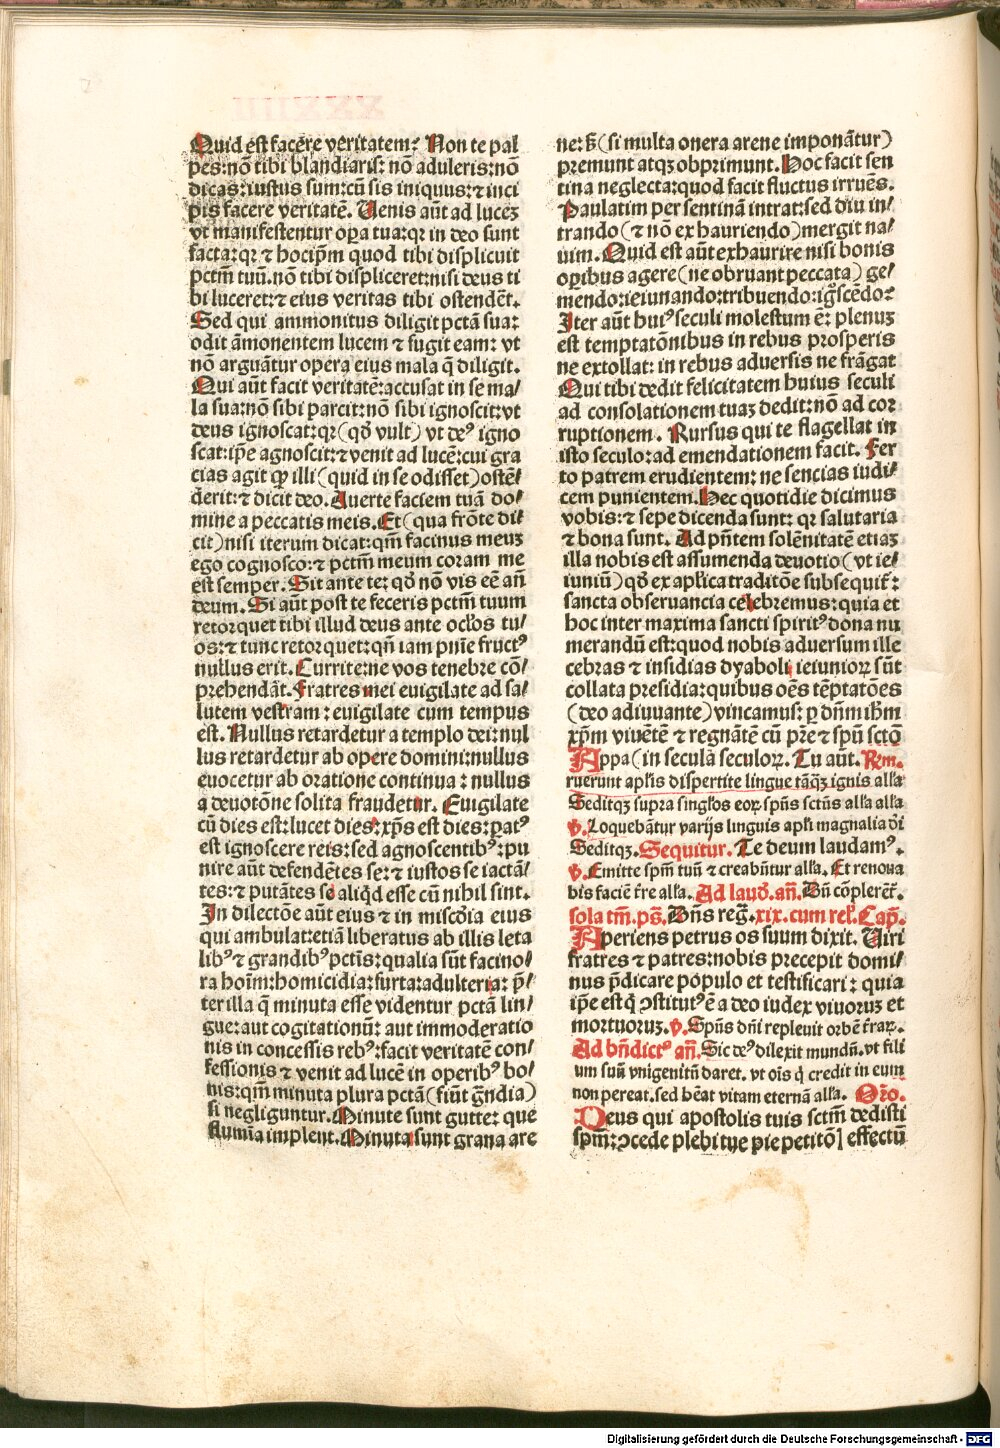 Quid est facere veritatem? Non te pal
pes: nō tibi blandiaris: nō aduleris: nō
dicas: iustus sum: cū sis iniquus: ⁊ inci
pis facere veritatē. Uenis aūt ad lucez
vt manifestentur opa tua: qꝛ in deo sunt
facta: qꝛ ⁊ hocipm̄ quod tibi displicuit
pctm̄ tuū. nō tibi displiceret: nisi deus ti
bi luceret: ⁊ eius veritas tibi ostendēt.
Sed qui ammonitus diligit pctā sua:
odit āmonentem lucem ⁊ fugit eam: vt
nō arguātur opera eius mala q̄ diligit.
Qui aūt facit veritatē: accusat in se ma/
la sua: nō sibi parcit: nō sibi ignoscit: vt
deus ignoscat: qꝛ (qd̄ vult) vt deꝰ igno
scat: ip̄e agnoscit: ⁊ venit ad lucē: cui gra
cias agit ꝙ illi (quid in se odisset) ostē/
derit: ⁊ dicit deo. Auerte faciem tuā do/
mine a peccatis meis. Et (qua frōte di/
cit) nisi iterum dicat: qm̄ facinus meuz
ego cognosco: ⁊ pctm̄ meum coram me
est semper. Sit ante te: qd̄ nō vis eē an̄
deum. Si aūt post te feceris pctm̄ tuum
retorquet tibi illud deus ante ocl̓os tu/
os: ⁊ tunc retorquet: qn̄ iam pnīe fructꝰ
nullus erit. Currite: ne vos tenebre cō/
prehendāt. Fratres mei euigilate ad sa/
lutem vestram: euigilate cum tempus
est. Nullus retardetur a templo dei: nul
lus retardetur ab opere domini: nullus
euocetur ab oratione continua: nullus
a deuotōne solita fraudetur. Euigilate
cū dies est: lucet dies: xp̄s est dies: patꝰ
est ignoscere reis: sed agnoscentibꝰ: pu
nire aūt defendētes se: ⁊ iustos se iactā/
tes: ⁊ putātes se aliqd esse cū nihil sint.
In dilectōe aūt eius ⁊ in misc̄dia eius
qui ambulat: etiā liberatus ab illis leta
libꝰ ⁊ grandibꝰ pctis: qualia sūt facino/
ra hoīm: homicidia: furta: adulteria: p̄/
ter illa q̄ minuta esse videntur pctā lin/
gue: aut cogitationū: aut immoderatio
nis in concessis rebꝰ: facit veritatē con/
fessionis ⁊ venit ad lucē in operibꝰ bo/
nis: qm̄ minuta plura pctā (fiūt grādia)
si negliguntur. Minute sunt gutte: que
flumīa implent. Minuta sunt grana are
ne: s̄ (si multa onera arene imponātur)
premunt atqꝫ obprimunt. Hoc facit sen
tina neglecta: quod facit fluctus irruēs.
Paulatim per sentinā intrat: sed diu in/
trando (⁊ nō exhauriendo) mergit na/
uim. Quid est aūt exhaurire nisi bonis
opibus agere (ne obruant peccata) ge/
mendo: ieiunando: tribuendo: igscēdo?
Iter aūt huiꝰ seculi molestum ē: plenuz
est temptatōnibus in rebus prosperis
ne extollat: in rebus aduersis ne frāgat
Qui tibi dedit felicitatem huius seculi
ad consolationem tuaz dedit: nō ad cor
ruptionem. Rursus qui te flagellat in
isto seculo: ad emendationem facit. Fer
to patrem erudientem: ne sencias iudi/
cem punientem. Hec quotidie dicimus
vobis: ⁊ sepe dicenda sunt: qꝛ salutaria
⁊ bona sunt. Ad pn̄tem solēnitatē etiaz
illa nobis est assumenda deuotio (vt ie/
iuniū) qd̄ ex aplica traditōe subsequit̄:
sancta obseruancia celebremus: quia et
hoc inter maxima sancti spiritꝰ dona nu
merandū est: quod nobis aduersum ille
cebras ⁊ insidias dyaboli ieiunioꝝ sūt
collata presidia: quibus oēs tēptatōes
(deo adiuuante) vincamus: ꝑ dn̄m ihm̄
xp̄m viuētē ⁊ regnātē cū p̄re ⁊ spū sctō
Appa (in seculā seculoꝝ. Tu aūt. Rm.
ruerunt aplis dispertite lingue tāqꝫ ignis alla
Seditqꝫ supra singlos eoꝝ spūs sctūs alla alla
v. Loquebātur varijs linguis apli magnalia dei
Seditqꝫ. Sequitur. Te deum laudamꝰ.
v. Emitte spm̄ tuū ⁊ creabūtur alla. Et renoua
bis faciē tre alla. Ad laud. an̄. Dū cōplerēt̄.
sola tm̄. ps̄. Dn̄s reg̃. xix. cum rel̓. Cap̄.
Aperiens petrus os suum dixit. Uiri
fratres ⁊ patres: nobis precepit domi/
nus p̄dicare populo et testificari: quia
ip̄e est q̇ ↄstitutꝰ ē a deo iudex viuoruz et
mortuoruz. v. Spūs dn̄i repleuit orbē traꝝ.
Ad bn̄dictꝰ an̄. Sic deꝰ dilexit mundū. vt fili
um suū vnigenitū daret. vt oīs q̇ credit in eum
non pereat. sed hēat vitam eternā alla. Oro.
Deus qui apostolis tuis sctm̄ dedisti
spm̄: ↄcede plebi tue pie petitōꝭ effectū
Digitalisierung gefördert durch die Deutsche Forschungsgemeinschaft - DFG